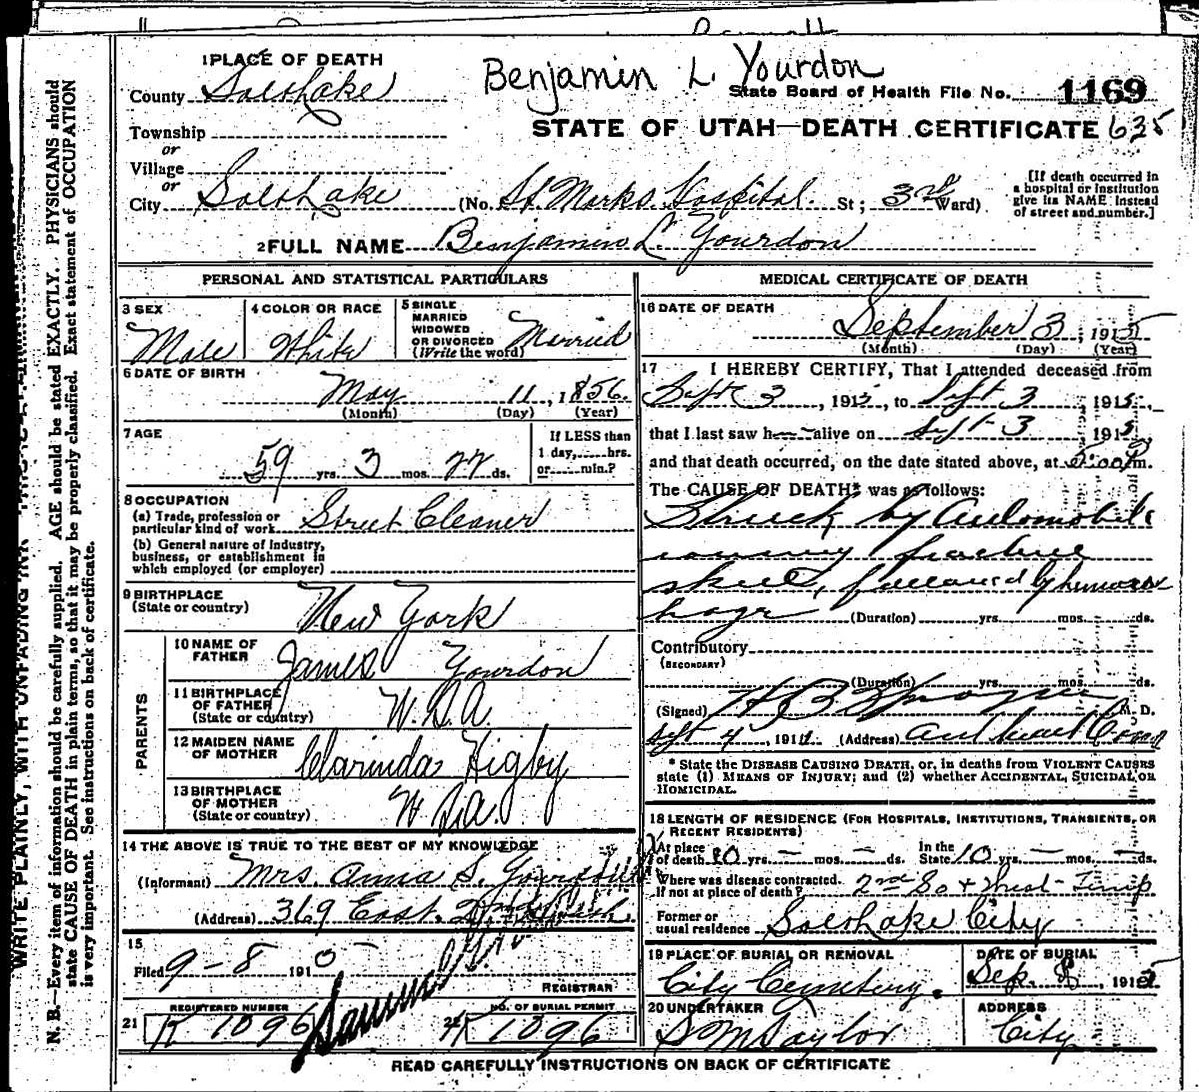 Benjamin L. Yourdon
1 PLACE OF DEATH
County Salt Lake
State Board of Health File No. 1169
Township
STATE OF UTAH—DEATH CERTIFICATE 635
or
Village
or
City Salt Lake (No. St. Marks Hospital. St; 3rd Ward)
[If death occurred in a hospital or institution give its NAME instead of street and number.]
2 FULL NAME Benjamin L. Yourdon
PERSONAL AND STATISTICAL PARTICULARS
3 SEX Male
4 COLOR OR RACE White
5 SINGLE MARRIED WIDOWED OR DIVORCED (Write the word) Married
6 DATE OF BIRTH
May 11, 1856
(Month) (Day) (Year)
7 AGE
59 yrs. 3 mos. 22 ds.
If LESS than 1 day, hrs. or min.?
8 OCCUPATION
(a) Trade, profession or particular kind of work Street Cleaner
(b) General nature of Industry, business, or establishment in which employed (or employer)
9 BIRTHPLACE (State or country) New York
PARENTS
10 NAME OF FATHER James Yourdon
11 BIRTHPLACE OF FATHER (State or country) U.S.A.
12 MAIDEN NAME OF MOTHER Clarinda Higby
13 BIRTHPLACE OF MOTHER (State or country) U.S.A.
14 THE ABOVE IS TRUE TO THE BEST OF MY KNOWLEDGE
(Informant) Mrs. Anna S. Yourdon
(Address) 319 East
15
Filed 9-8 191
REGISTRAR
REGISTERED NUMBER
21 K 1096
NO. OF BURIAL PERMIT
22 K 1096
MEDICAL CERTIFICATE OF DEATH
16 DATE OF DEATH
September 3, 1915
(Month) (Day) (Year)
17 I HEREBY CERTIFY, That I attended deceased from
Sept 3, 191 , to Sept 3, 1915,
that I last saw h alive on Sept 3, 1915,
and that death occurred, on the date stated above, at 5:00 P m.
The CAUSE OF DEATH* was as follows:
Struck by Automobile
causing fracture
skull, followed by hemorr
hage (Duration) yrs. mos. ds.
Contributory
(SECONDARY)
(Duration) yrs. mos. ds.
(Signed) H B Sprague M. D.
Sept 4, 191 (Address)
* State the DISEASE CAUSING DEATH, or, in deaths from VIOLENT CAUSES
state (1) MEANS OF INJURY; and (2) whether ACCIDENTAL, SUICIDAL, OR
HOMICIDAL.
18 LENGTH OF RESIDENCE (FOR HOSPITALS, INSTITUTIONS, TRANSIENTS, OR
RECENT RESIDENTS)
At place of death 10 yrs. — mos. — ds. In the State 10 yrs. — mos. — ds.
Where was disease contracted. If not at place of death? 2nd So & West Temp
Former or usual residence Salt Lake City
19 PLACE OF BURIAL OR REMOVAL
City Cemetery.
DATE OF BURIAL
Sep. 8, 1915
20 UNDERTAKER
S M Taylor
ADDRESS
City
READ CAREFULLY INSTRUCTIONS ON BACK OF CERTIFICATE
WRITE PLAINLY, WITH UNFADING INK
N. B.—Every item of information should be carefully supplied. AGE should be stated EXACTLY. PHYSICIANS should
state CAUSE OF DEATH in plain terms, so that it may be properly classified. Exact statement of OCCUPATION
is very important. See instructions on back of certificate.